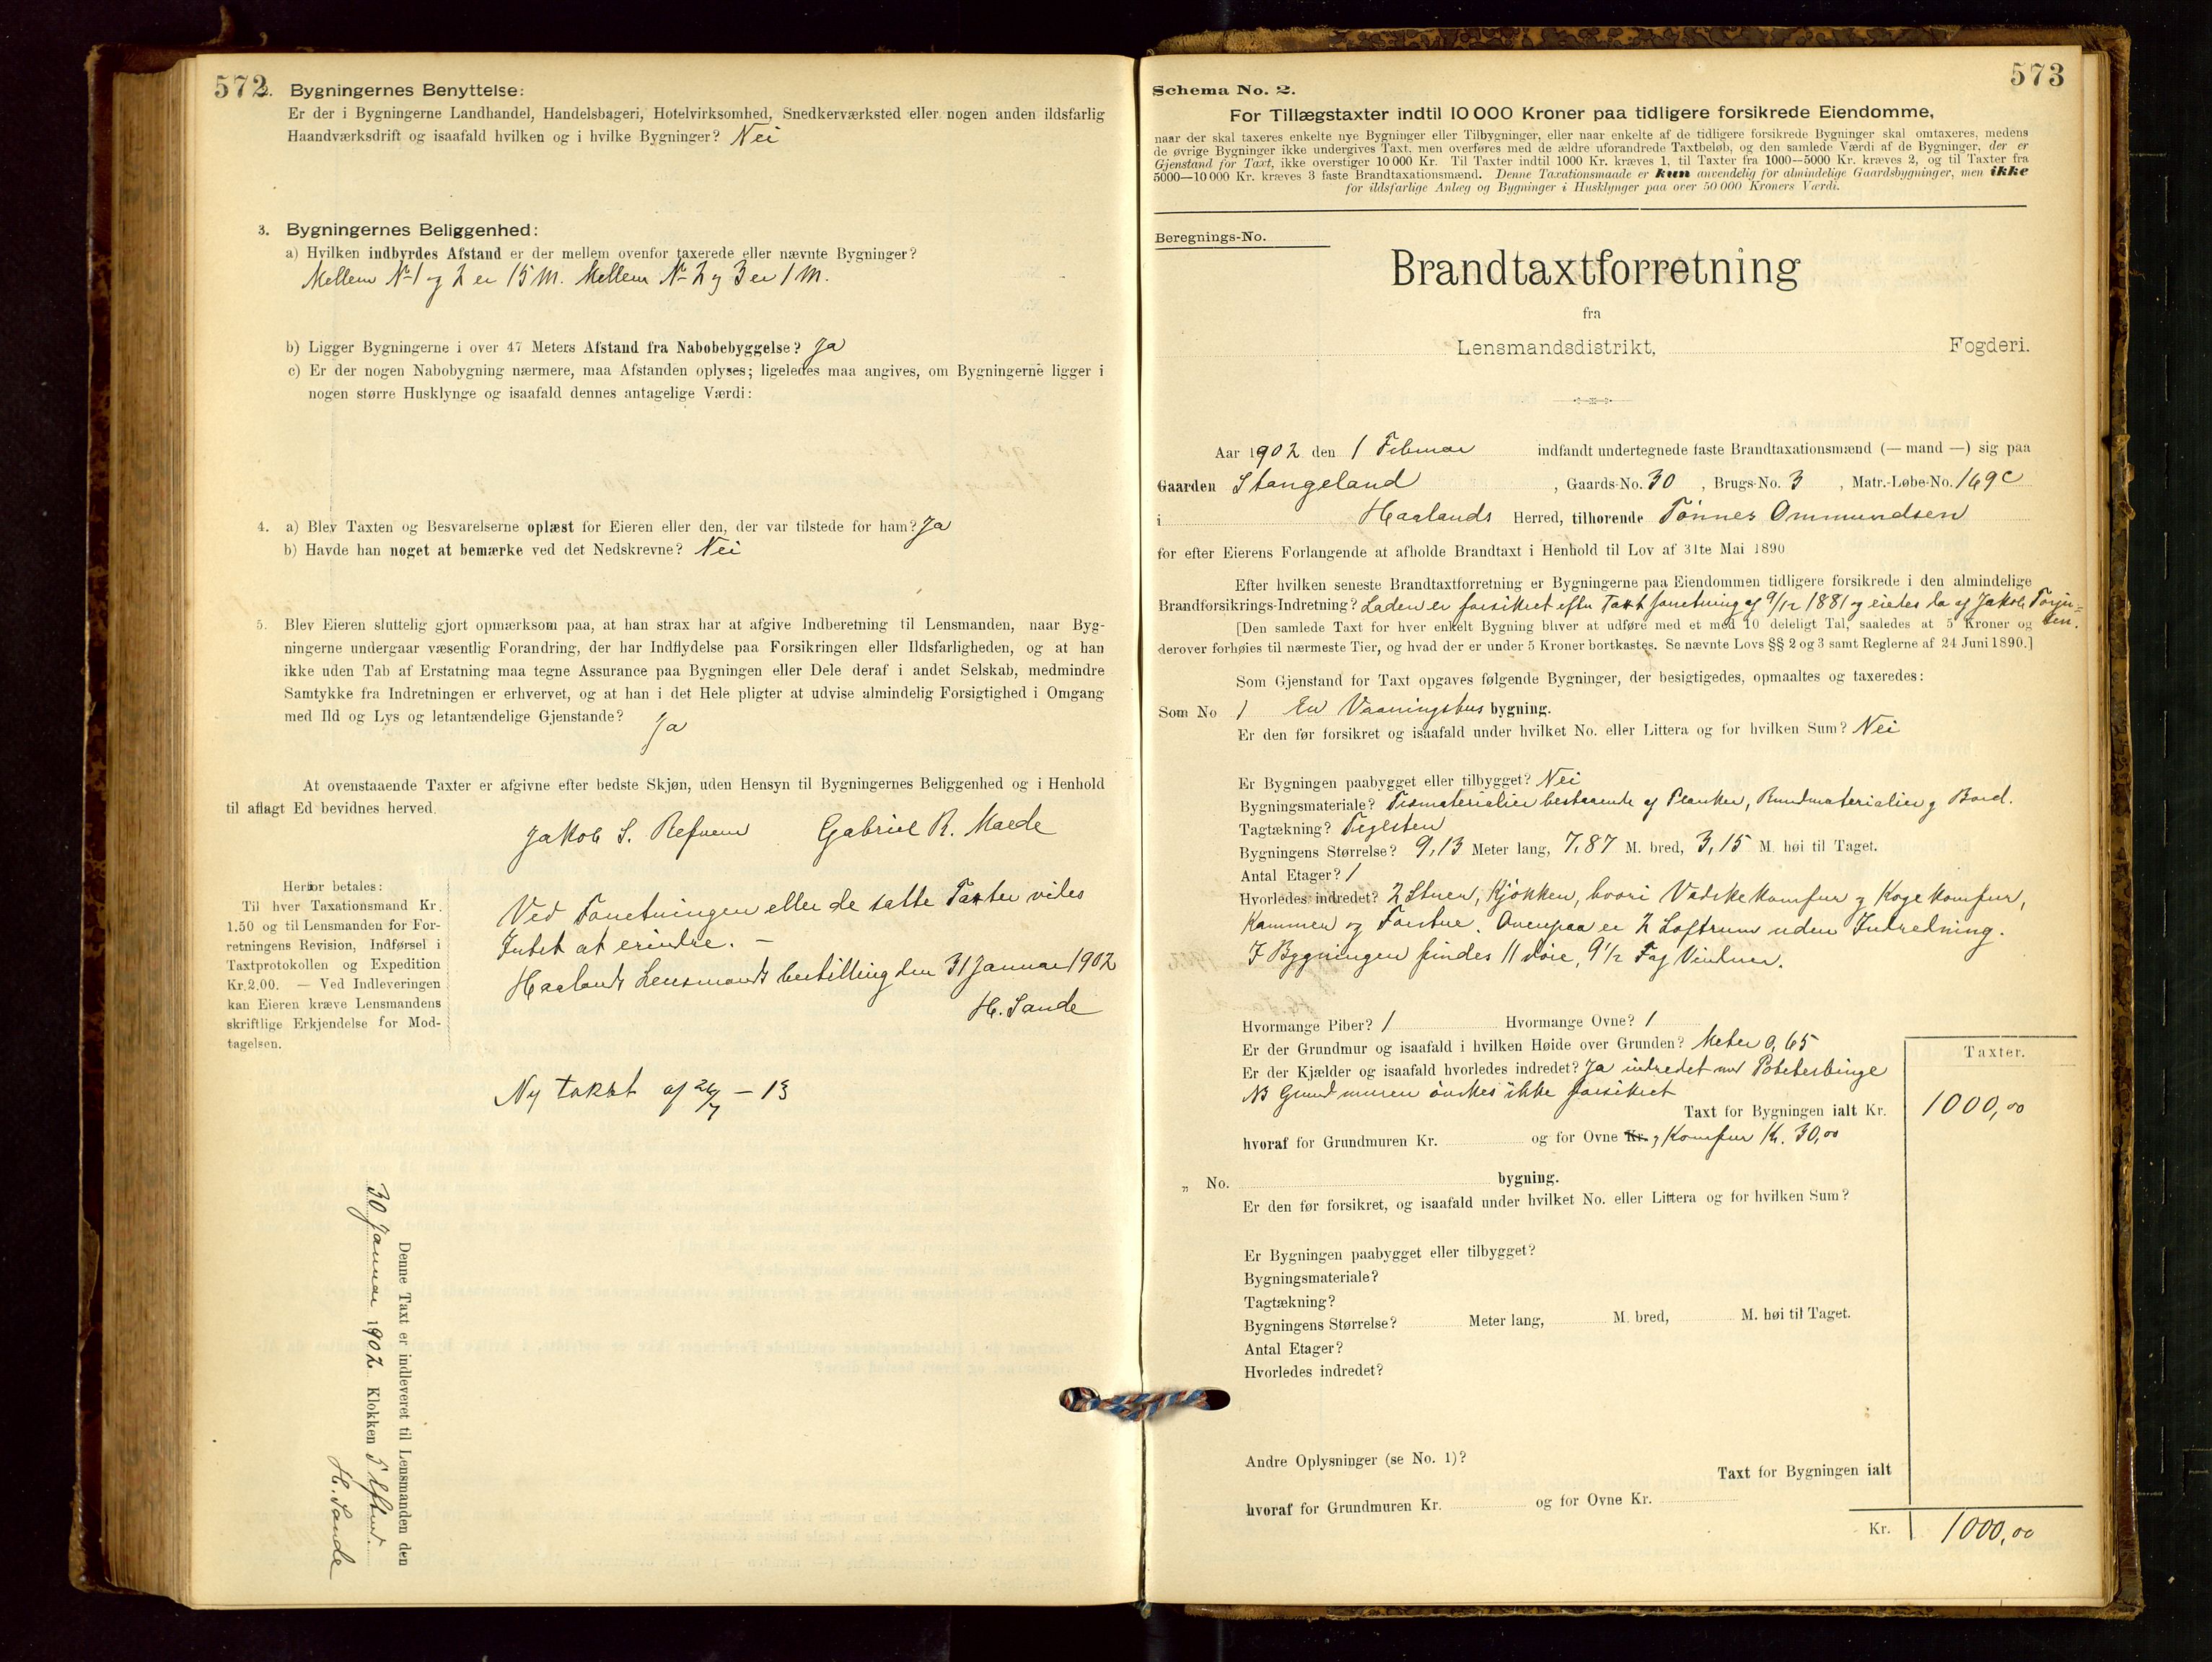 572
2. Bygningernes Benyttelse:
Er der i Bygningerne Landhandel, Handelsbageri, Hotelvirksomhed, Snedkerværksted eller nogen anden ildsfarlig
Haandværksdrift og isaafald hvilken og i hvilke Bygninger? Nei
3. Bygningernes Beliggenhed:
a) Hvilken indbyrdes Afstand er der mellem ovenfor taxerede eller nævnte Bygninger?
Mellem No 1 og 2 er 15 M. Mellem No 2 og 3 er 1 M.
b) Ligger Bygningerne i over 47 Meters Afstand fra Nabobebyggelse? Ja
c) Er der nogen Nabobygning nærmere, maa Afstanden oplyses; ligeledes maa angives, om Bygningerne ligger i
nogen større Husklynge og isaafald dennes antagelige Værdi:
4. a) Blev Taxten og Besvarelserne oplæst for Eieren eller den, der var tilstede for ham? Ja
b) Havde han noget at bemærke ved det Nedskrevne? Nei
5. Blev Eieren sluttelig gjort opmærksom paa, at han strax har at afgive Indberetning til Lensmanden, naar Byg-
ningerne undergaar væsentlig Forandring, der har Indflydelse paa Forsikringen eller Ildsfarligheden, og at han
ikke uden Tab af Erstatning maa tegne Assurance paa Bygningen eller Dele deraf i andet Selskab, medmindre
Samtykke fra Indretningen er erhvervet, og at han i det Hele pligter at udvise almindelig Forsigtighed i Omgang
med Ild og Lys og letantændelige Gjenstande? Ja
At ovenstaaende Taxter er afgivne efter bedste Skjøn, uden Hensyn til Bygningernes Beliggenhed og i Henhold
til aflagt Ed bevidnes herved.
Jakob S. Refnem Gabriel R. Malde
Herfor betales:
Til hver Taxationsmand Kr.
1.50 og til Lensmanden for For-
retningens Revision, Indførsel i
Taxtprotokollen og Expedition
Kr. 2.00. — Ved Indleveringen
kan Eieren kræve Lensmandens
skriftlige Erkjendelse for Mod-
tagelsen.
Ved Forretningen eller de satte Taxter vides
Intet at erindre. —
Haalands Lensmands bestilling den 31 Januar 1902
H. Sande
Ny takst af 26/7 – 13
Denne Taxt er indleveret til Lensmanden den
30 Januar 1902 Klokken 5 Efterm.
H. Sande
573
Schema No. 2.
For Tillægstaxter indtil 10 000 Kroner paa tidligere forsikrede Eiendomme,
naar der skal taxeres enkelte nye Bygninger eller Tilbygninger, eller naar enkelte af de tidligere forsikrede Bygninger skal omtaxeres, medens
de øvrige Bygninger ikke undergives Taxt, men overføres med de ældre uforandrede Taxtbeløb, og den samlede Værdi af de Bygninger, der er
Gjenstand for Taxt, ikke overstiger 10 000 Kr. Til Taxter indtil 1000 Kr. kræves 1, til Taxter fra 1000—5000 Kr. kræves 2, og til Taxter fra
5000—10 000 Kr. kræves 3 faste Brandtaxationsmænd. Denne Taxationsmaade er kun anvendelig for almindelige Gaardsbygninger, men ikke
for ildsfarlige Anlæg og Bygninger i Husklynger paa over 50 000 Kroners Værdi.
Beregnings-No.
Brandtaxtforretning
fra
Lensmandsdistrikt, Fogderi.
Aar 1902 den 1 Februar indfandt undertegnede faste Brandtaxationsmænd (— mand —) sig paa
Gaarden Stangeland, Gaards-No. 30, Brugs-No. 3, Matr.-Løbe-No. 169c
i Haalands Herred, tilhørende Tönnes Ommundsen
for efter Eierens Forlangende at afholde Brandtaxt i Henhold til Lov af 31te Mai 1890
Efter hvilken seneste Brandtaxtforretning er Bygningerne paa Eiendommen tidligere forsikrede i den almindelige
Brandforsikrings-Indretning? Laden er forsikret efter Taxtforretning af 9/12 1881 og eietes da af Jakob Torju=
sen.
[Den samlede Taxt for hver enkelt Bygning bliver at udføre med et med 10 deleligt Tal, saaledes at 5 Kroner og
derover forhøies til nærmeste Tier, og hvad der er under 5 Kroner bortkastes. Se nævnte Lovs §§ 2 og 3 samt Reglerne af 24 Juni 1890.]
Som Gjenstand for Taxt opgaves følgende Bygninger, der besigtigedes, opmaaltes og taxeredes:
Som No 1 En Vaaningshus bygning.
Er den før forsikret og isaafald under hvilket No. eller Littera og for hvilken Sum? Nei
Er Bygningen paabygget eller tilbygget? Nei
Bygningsmateriale? Træmaterialier bestaaende af Planker, Bundmaterialier og Bord.
Tagtækning? Teglsten
Bygningens Størrelse? 9,13 Meter lang, 7,87 M. bred, 3,15 M. høi til Taget.
Antal Etager? 1
Hvorledes indredet? 2 Stuer, Kjøkken, hvori Vadskekomfur og Kogekomfur,
Kammer og Forstue. Ovenpaa er 2 Loftrum uden Indredning.
I Bygningen findes 11 döre, 9½ Fag Vinduer.
Hvormange Piber? 1 Hvormange Ovne? 1
Er der Grundmur og isaafald i hvilken Høide over Grunden? Meter 0,65
Er der Kjælder og isaafald hvorledes indredet? Ja indredet med Potetesbinge
NB Grundmuren önskes ikke forsikret
Taxter.
Taxt for Bygningen ialt Kr. 1000,00
hvoraf for Grundmuren Kr. og for Ovne Kr. og Komfur Kr. 30,00
„ No. bygning.
Er den før forsikret, og isaafald under hvilket No. eller Littera og for hvilken Sum?
Er Bygningen paabygget eller tilbygget?
Bygningsmateriale?
Tagtækning?
Bygningens Størrelse? Meter lang, M. bred, M. høi til Taget.
Antal Etager?
Hvorledes indredet?
Andre Oplysninger (se No. 1)?
Taxt for Bygningen ialt
hvoraf for Grundmuren Kr. og for Ovne Kr.
Kr. 1000,00